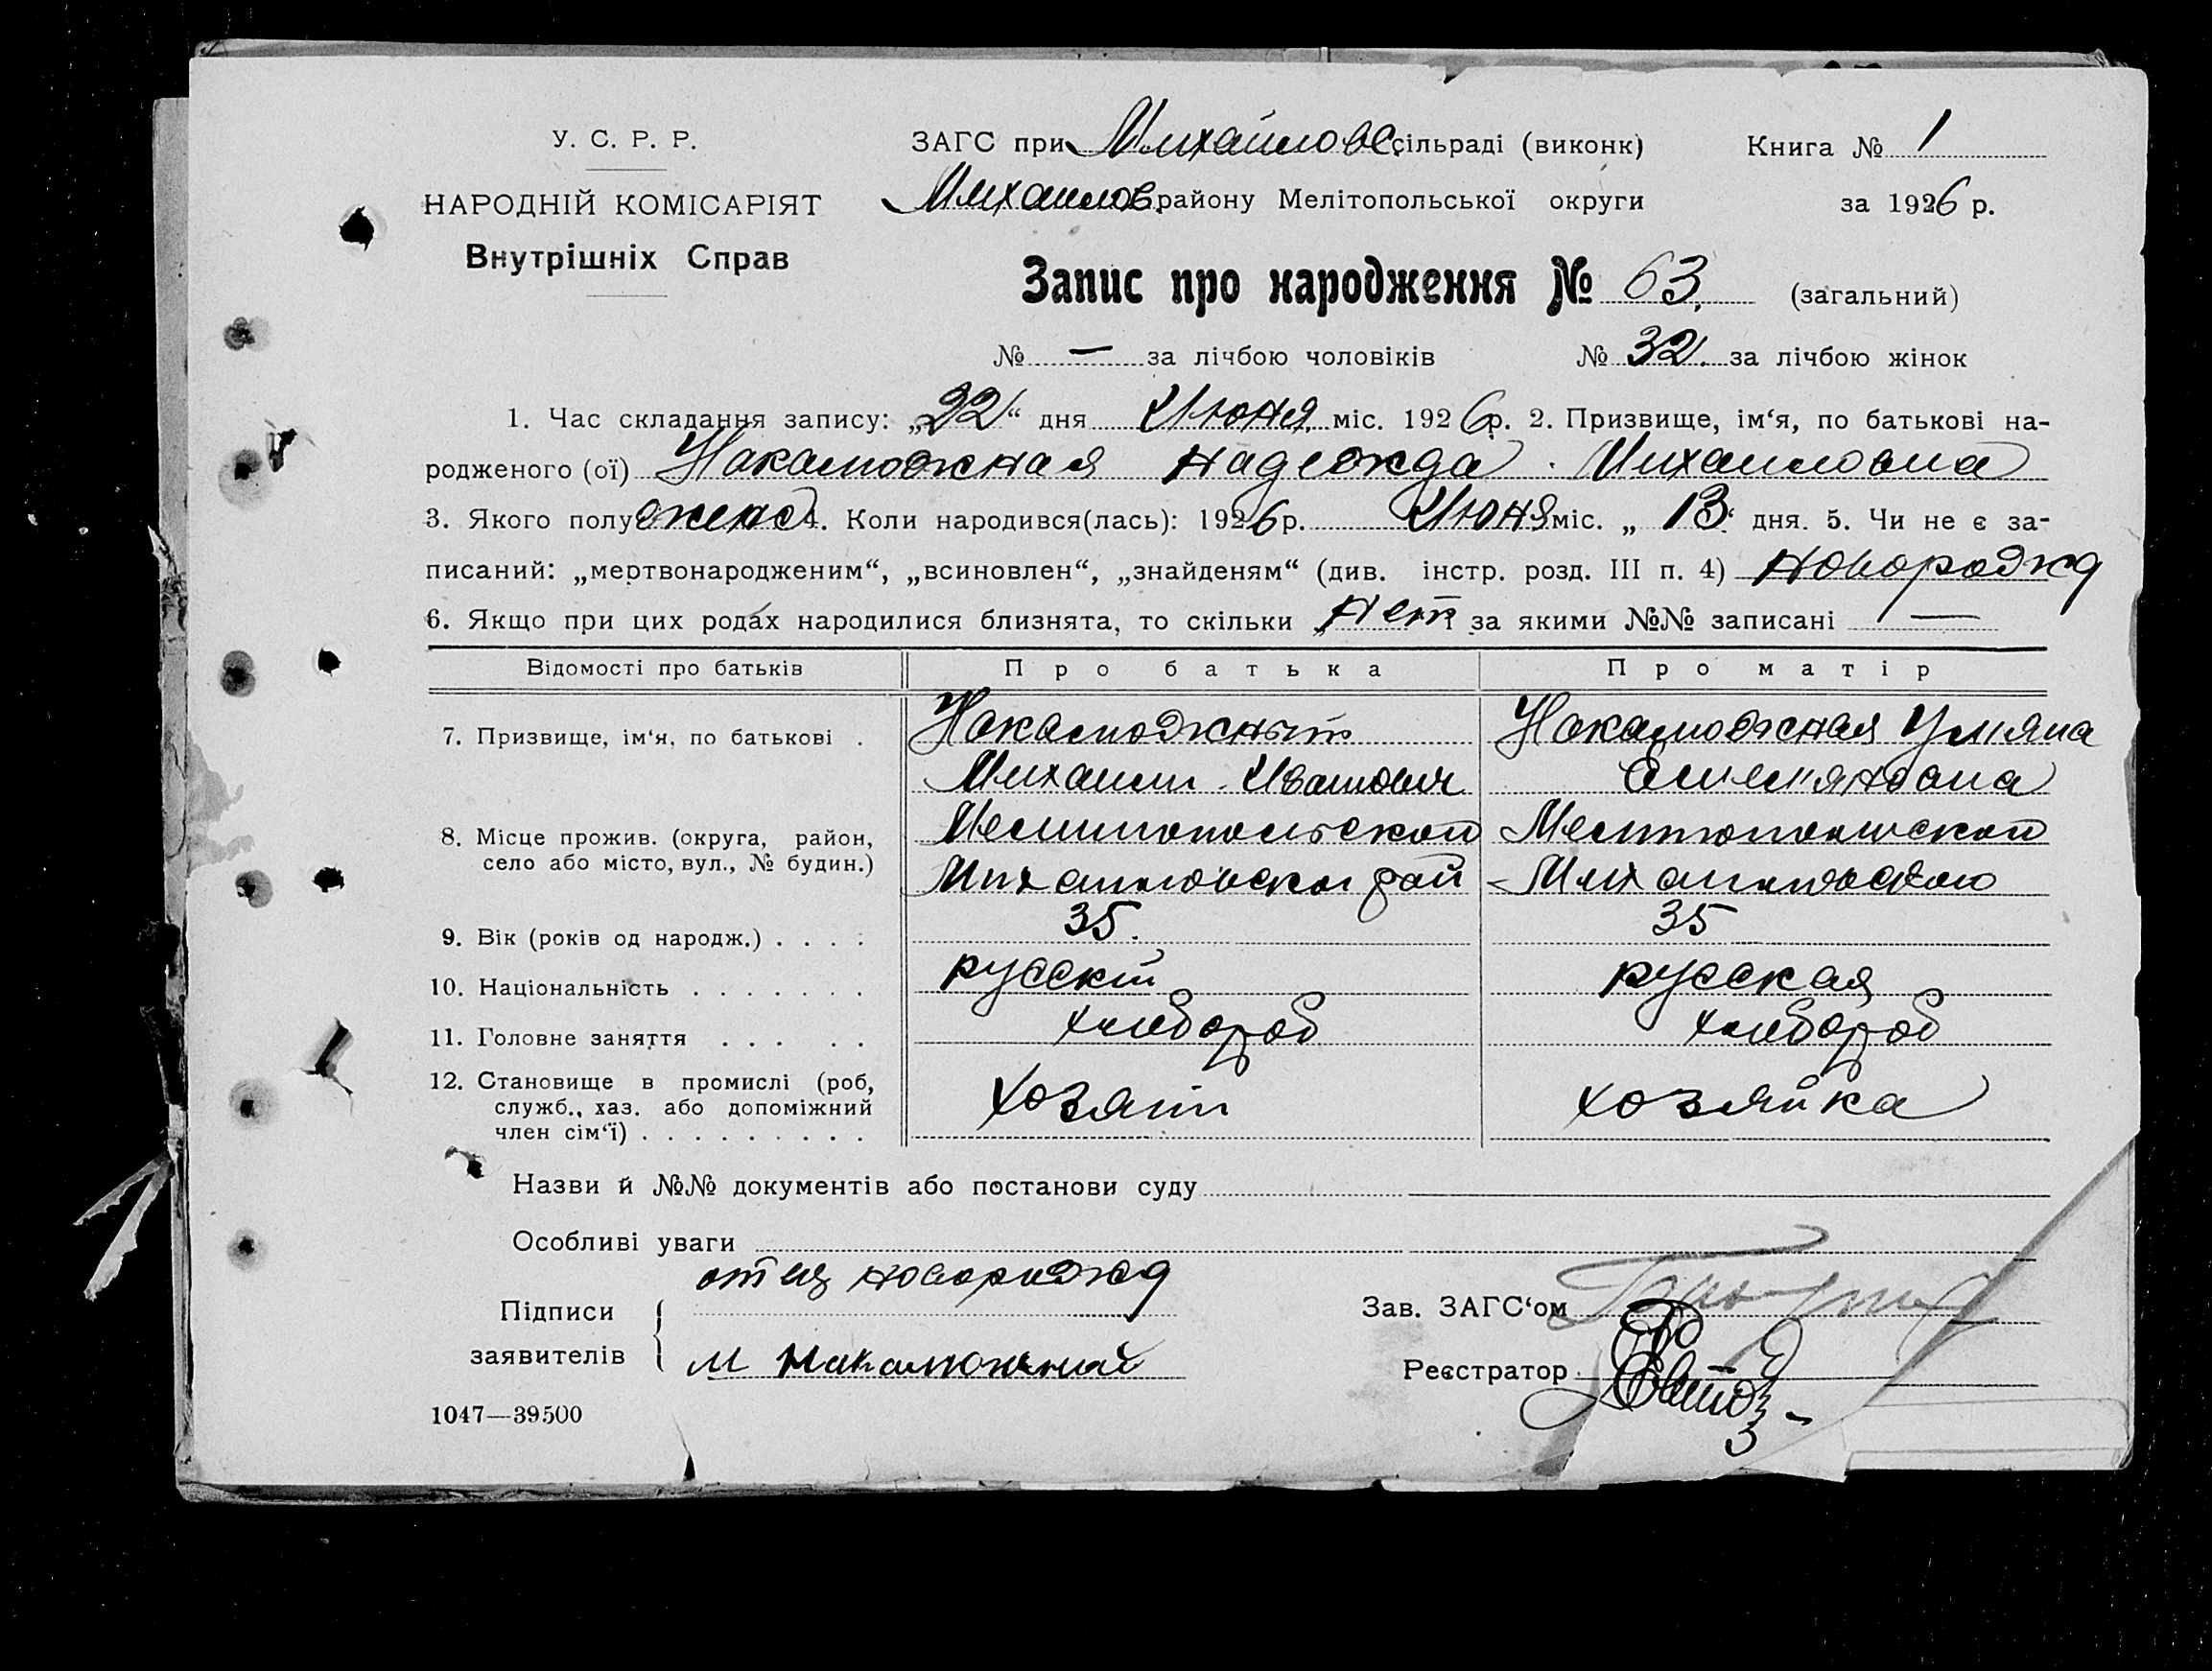 У. С. Р. Р.
НАРОДНІЙ КОМІСАРІЯТ
Внутрішніх Справ
ЗАГС при Михайловс. сільраді (виконк)
Михайлов. району Мелітопольської округи
Книга № 1
за 1926 р.
Запис про народження № 63. (загальний)
№ — за лічбою чоловіків № 32. за лічбою жінок
1. Час складання запису: „22“ дня Июня міс. 1926 р. 2. Призвище, ім‘я, по батькові на-
родженого (ої) Накаможная Надежда Михайловна
3. Якого полу женс 4. Коли народився(лась): 1926 р. Июня міс. „13“ дня. 5. Чи не є за-
писаний: „мертвонародженим“, „всиновлен“, „знайденям“ (див. інстр. розд. III п. 4) Новорожд
6. Якщо при цих родах народилися близнята, то скільки „Нет“ за якими №№ записані —
Відомості про батьків Про батька Про матір
7. Призвище, ім‘я, по батькові . Накаможный Накаможная Ульяна
Михаил Иванович Емельяновна
8. Місце прожив. (округа, район, Мелитопольской Мелитопольской
село або місто, вул., № будин.) Михайловског рай Михайловского
9. Вік (років од народж.) . . . . 35. 35
10. Національність . . . . . . . русский русская
11. Головне заняття . . . . . хлебороб хлебороб
12. Становище в промислі (роб, хозяин хозяйка
служб., хаз. або допоміжний
член сім‘ї) . . . . . . . . .
Назви й №№ документів або постанови суду
Особливі уваги
отец новорожд
Підписи
заявителів М Накаможный
Зав. ЗАГС‘ом
Реєстратор
1047—39500